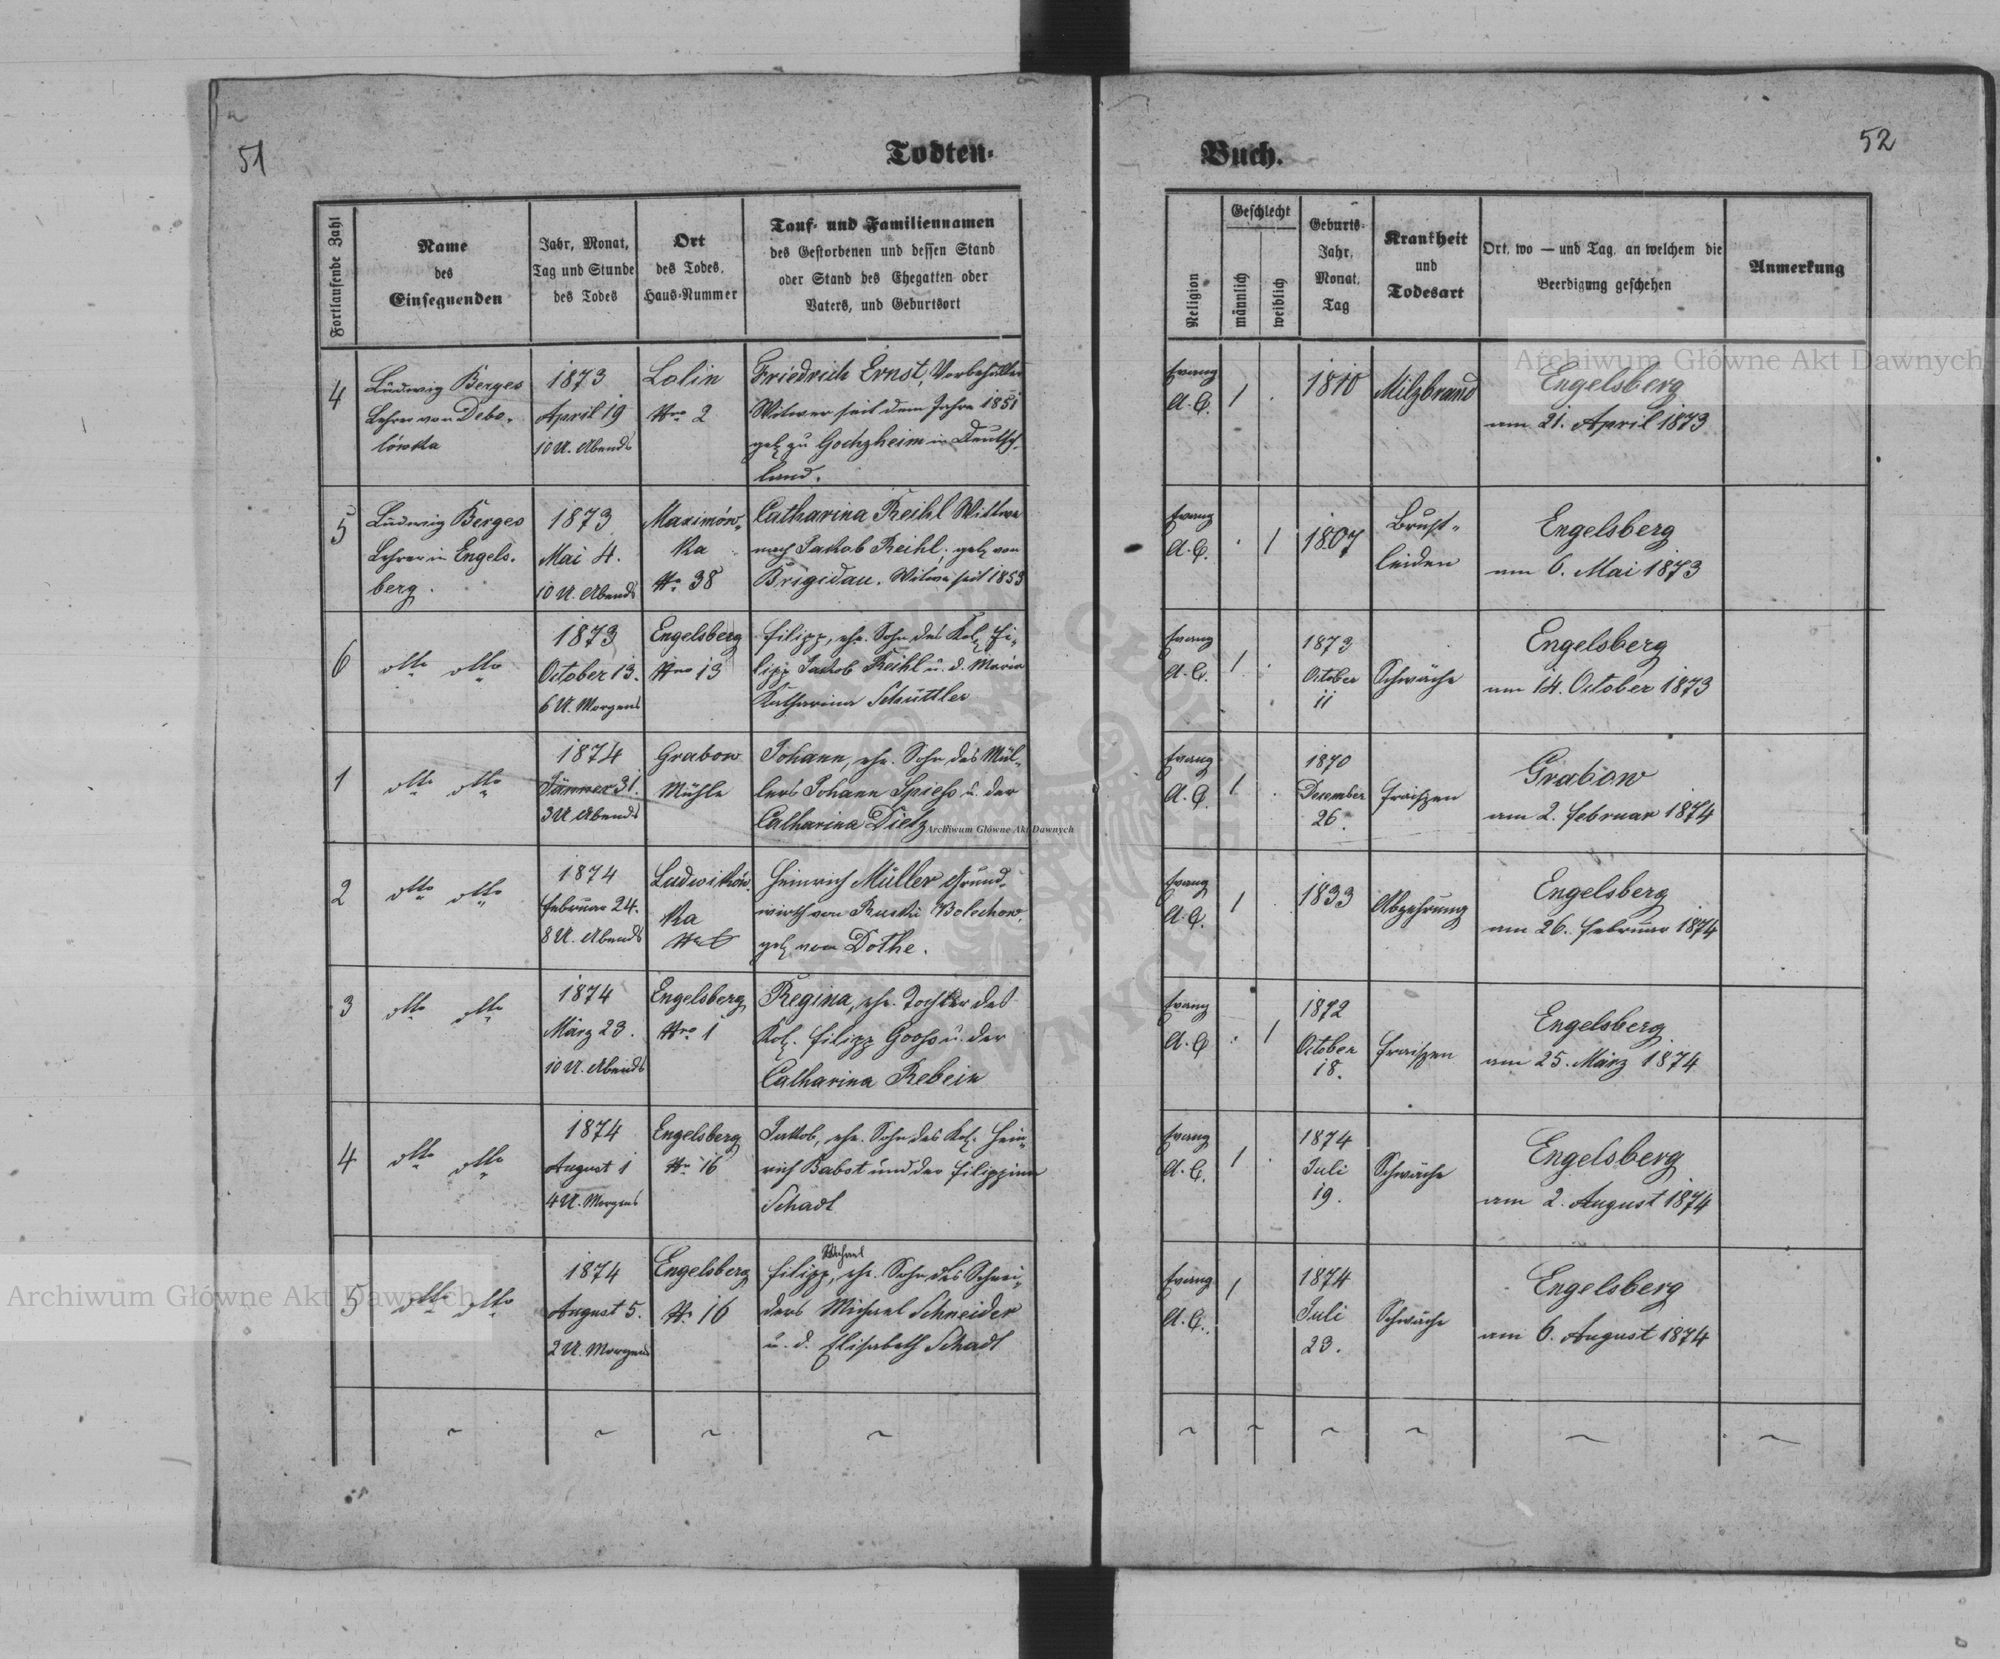 51
Todten-
Fortlaufende Zahl
Name
des
Einsegnenden
Jahr, Monat,
Tag und Stunde
des Todes
Ort
des Todes,
Haus-Nummer
Tauf- und Familiennamen
des Gestorbenen und dessen Stand
oder Stand des Ehegatten oder
Vaters, und Geburtsort
4
Ludwig Berges
Lehrer von Debo-
lówka
1873
April 19
10 U. Abends
Lolin
Nro 2
Friedrich Ernst,
Witwer seit dem Jahre 1851
geb. zu Gochzheim in Deutsch-
land.
5
Ludwig Berges
Lehrer in Engels-
berg.
1873
Mai 4.
10 U. Abends
Maximów-
ka
Nr. 38
Catharina Reihl Wittwe
nach Jakob Reihl, geb. von
Brigidau. Witwe seit 1853
6
otto otto
1873
October 13.
6 U. Morgens
Engelsberg
Nro 13
Filipp, ehe. Sohn des Kol. Fi-
lipp Jakob Reihl u. d. Maria
Katharina Schüttler
1
otto otto
1874
Jänner 31.
3 U Abends
Grabow
Mühle
Johann, ehe. Sohn des Mül-
lers Johann Spiess u. der
Catharina Dietz
2
otto otto
1874
Februar 24.
8 U. Abends
Ludwików-
ka
Heinrich Müller Grund-
wirth von Ruski Bolechow,
geb. von Dothe.
3
otto otto
1874
März 23.
10 U. Abends
Engelsberg
Nro 1
Regina, ehe. Tochter des
Kol. Filipp Gooss u. der
Catharina Rebein
4
otto otto
1874
August 1
4 U. Morgens
Engelsberg
Nr. 16
Jakob, ehe. Sohn des Kol. Hein-
rich Babst und der Filippina
Schadt
5
otto otto
1874
August 5.
2 U. Morgens
Engelsberg
Nr. 16
Michael
Filipp, ehe. Sohn des Schnei-
ders Michael Schneider
u. d. Elisabeth Schadt
52
Buch.
Religion
Geschlecht
männlich
weiblich
Geburts-
Jahr,
Monat,
Tag
Krankheit
und
Todesart
Ort, wo — und Tag, an welchem die
Beerdigung geschehen
Anmerkung
Evang
A. C.
1
1810
Milzbrand
Engelsberg
am 21. April 1873
Evang
A. C.
1
1807
Brust-
leiden
Engelsberg
am 6. Mai 1873
Evang
A. C.
1
1873
October
11
Schwäche
Engelsberg
am 14. October 1873
Evang
A. C.
1
1870
December
26.
Fraiszen
Grabow
am 2. Februar 1874
Evang
A. C.
1
1833
Abzehrung
Engelsberg
am 26. Februar 1874
Evang
A. C.
1
1872
October
18.
Fraiszen
Engelsberg
am 25. März 1874
Evang
A. C.
1
1874
Juli
19.
Schwäche
Engelsberg
am 2. August 1874
Evang
A. C.
1
1874
Juli
23.
Schwäche
Engelsberg
am 6. August 1874
Archiwum Główne Akt Dawnych
Archiwum Główne Akt Dawnych
Archiwum Główne Akt Dawnych